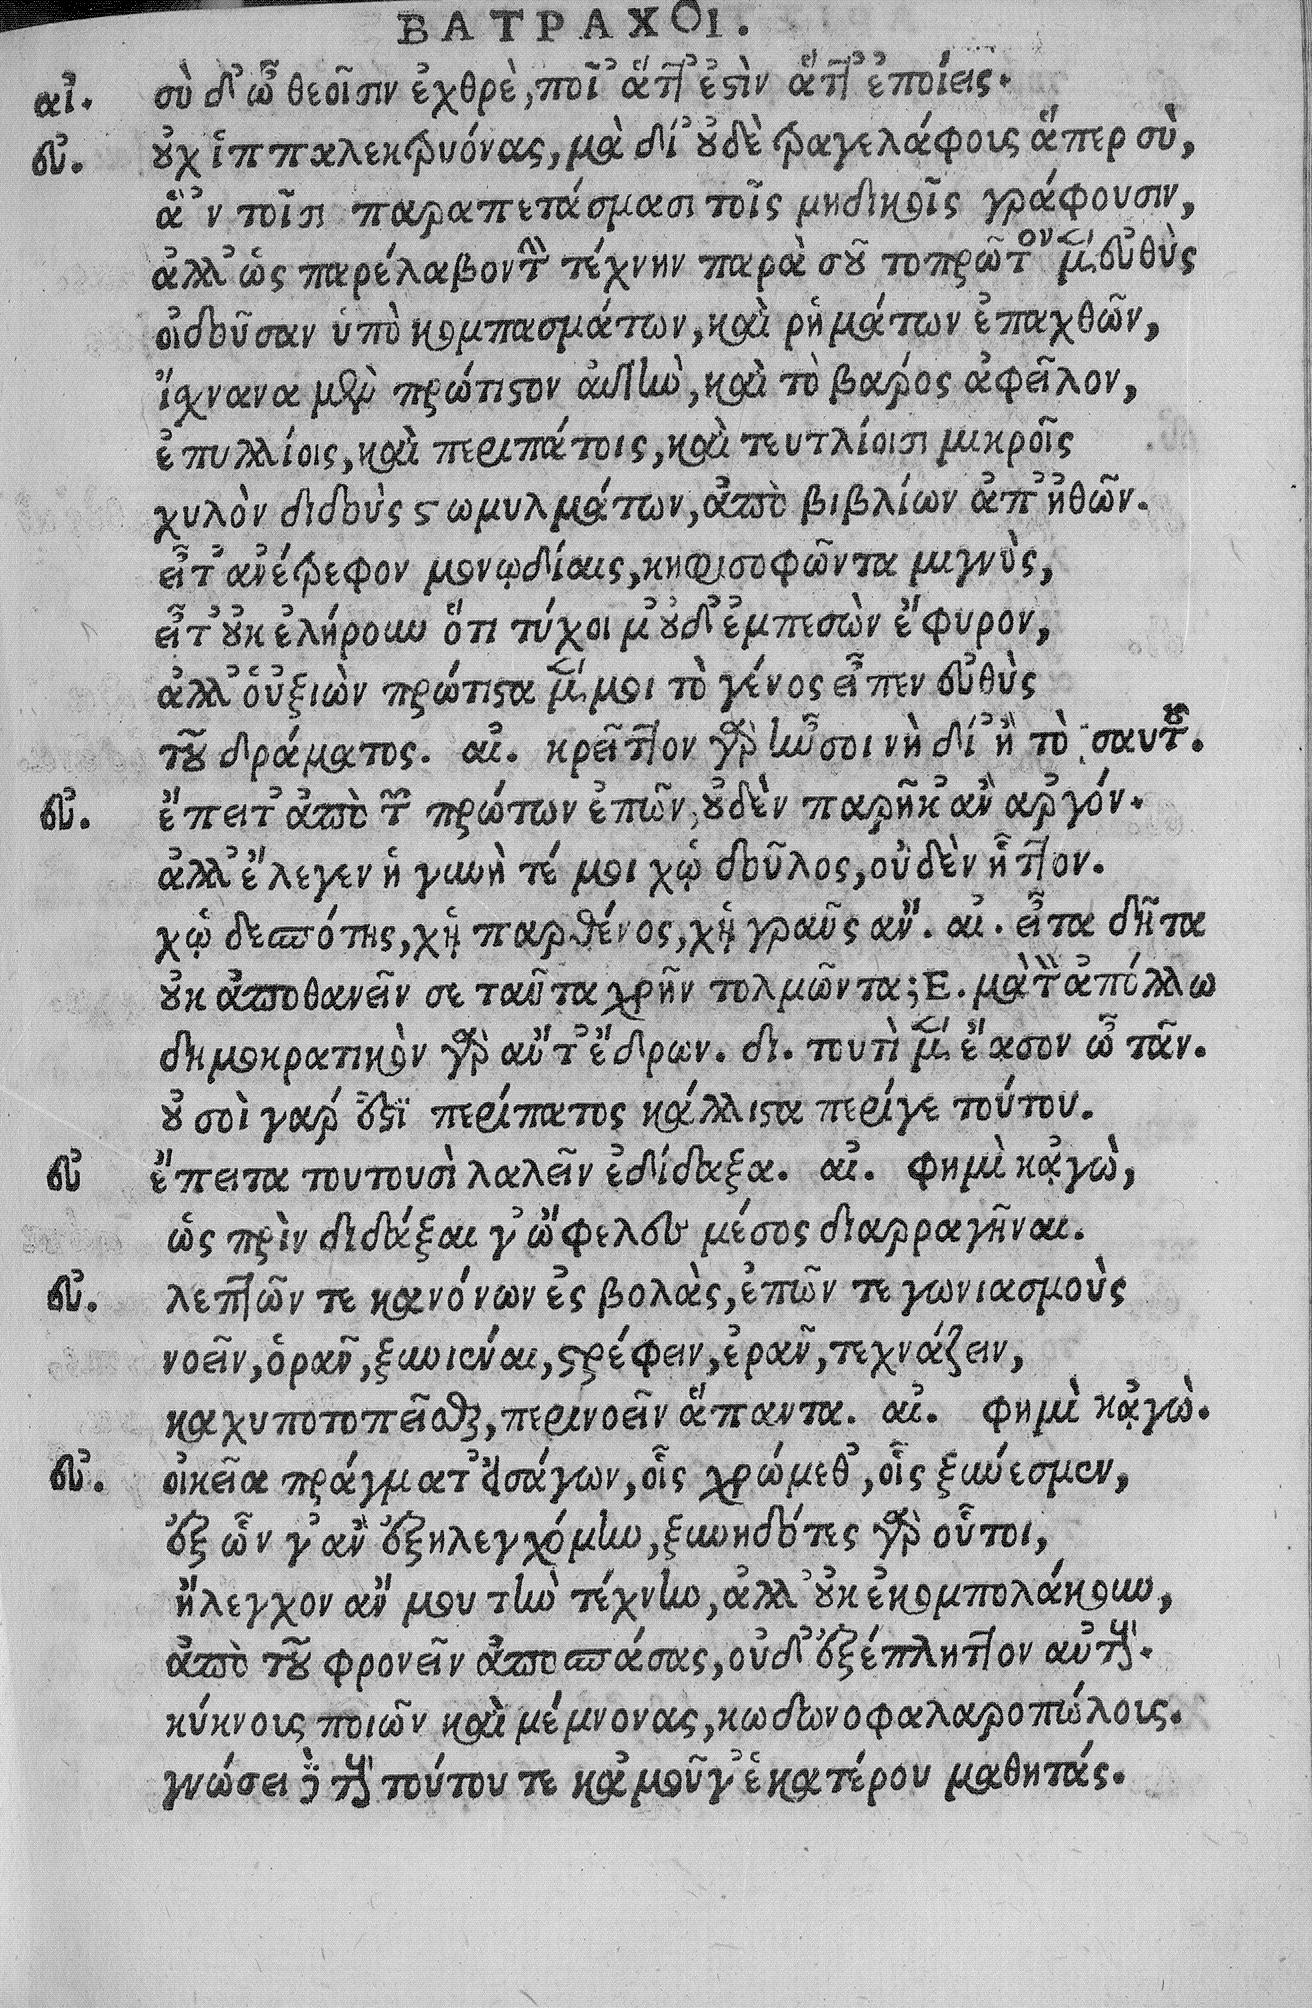 ΒΑΤΡΑΧΟΙ.
αἰ. σὺ δ' ὦ θεοῖσιν ἐχθρὲ, ποῖ' ἄττ' ἐστὶν ἄττ' ἐποίεις.
εὐ. οὐχ ἱππαλεκτρυόνας, μὰ δί' οὐδὲ τραγελάφους ἅπερ σὺ,
ἃ 'ν τοῖσι παραπετάσμασι τοῖς μηδικοῖς γράφουσιν,
ἀλλ' ὡς παρέλαβον τὴν τέχνην παρὰ σοῦ τοπρῶτον μὲν εὐθὺς
οἰδοῦσαν ὑπὸ κομπασμάτων, καὶ ῥημάτων ἐπαχθῶν,
ἴχνανα μὲν πρώτιστον αὐτὴν, καὶ τὸ βαρός ἀφεῖλον,
ἐπυλλίοις, καὶ περιπάτοις, καὶ τευτλίοισι μικροῖς
χυλὸν διδοὺς στωμυλμάτων, ἀπὸ βιβλίων ἀπ' ἠθῶν.
εἶτ' ἀνέτρεφον μονῳδίαις, κηφισοφῶντα μιγνὺς,
εἶτ' οὐκ ἐλήρουν ὅτι τύχοιμ' οὐδ' ἐμπεσὼν ἔφυρον,
ἀλλ' οὑξιὼν πρώτιστα μέν μοι τὸ γένος εἶπεν εὐθὺς
τοῦ δράματος. αἰ. κρεῖττον γὰρ ἦν σοι νὴ δί' ἢ τὸ σαυτοῦ.
εὐ. ἔπειτ' ἀπὸ τῶν πρώτων ἐπῶν, οὐδὲν παρῆκ' ἂν ἀργόν.
ἀλλ' ἔλεγεν ἡ γυνὴ τέ μοι χᾠ δοῦλος, οὐδὲν ἧττον.
χᾠ δεσπότης, χᾑ παρθένος, χᾑ γραῦς ἄν. αἰ. εἶτα δῆτα
οὐκ ἀποθανεῖν σε ταῦτα χρῆν τολμῶντα; Ε. μὰ τὸν ἀπόλλω
δημοκρατικὸν γὰρ αὔτ' ἔδρων. δι. τουτὶ μὲν ἔασον ὦ τᾶν.
οὐ σοὶ γάρ ἐστὶ περίπατος κάλλιστα περίγε τούτου.
εὐ ἔπειτα τουτουσὶ λαλεῖν ἐδίδαξα. αἰ. φημὶ κᾀγὼ,
ὡς πρὶν διδάξαι γ' ὤφελες μέσος διαρραγῆναι.
εὐ. λεπτῶν τε κανόνων ἐς βολὰς, ἐπῶν τε γωνιασμοὺς
νοεῖν, ὁρᾶν, ξυνιέναι, στρέφειν, ἐρᾶν, τεχνάζειν,
καχυποτοπεῖσθαι, περινοεῖν ἅπαντα. αἰ. φημὶ κᾀγὼ.
εὐ. οἰκεῖα πράγματ' εἰσάγων, οἷς χρώμεθ', οἷς ξυύεσμεν,
ἐξ ὧν γ' ἂν ἐξηλεγχόμην, ξυνηδότες γὰρ οὗτοι,
ἤλεγχον ἄν μου τὴν τέχνην, ἀλλ' οὐκ ἐκομπολάκουν,
ἀπὸ τοῦ φρονεῖν ἀποσπάσας, οὐδ' ἐξέπληττον αὐτοὺς.
κύκνους ποιῶν καὶ μέμνονας, κωδωνοφαλαροπώλους.
γνώσει δὲ τοὺς τούτου τε κᾀμοῦ γ' ἑκατέρου μαθητάς.